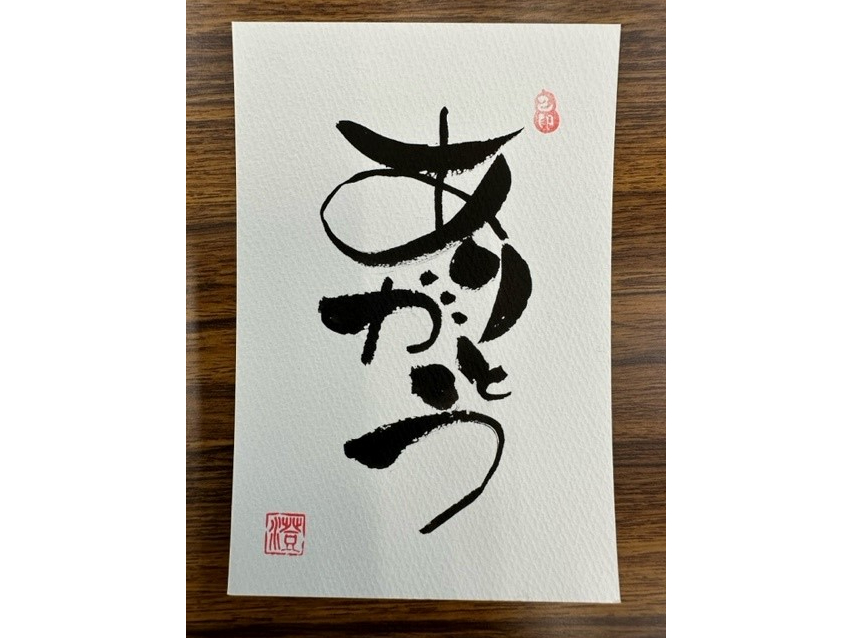 ありがとう
澄